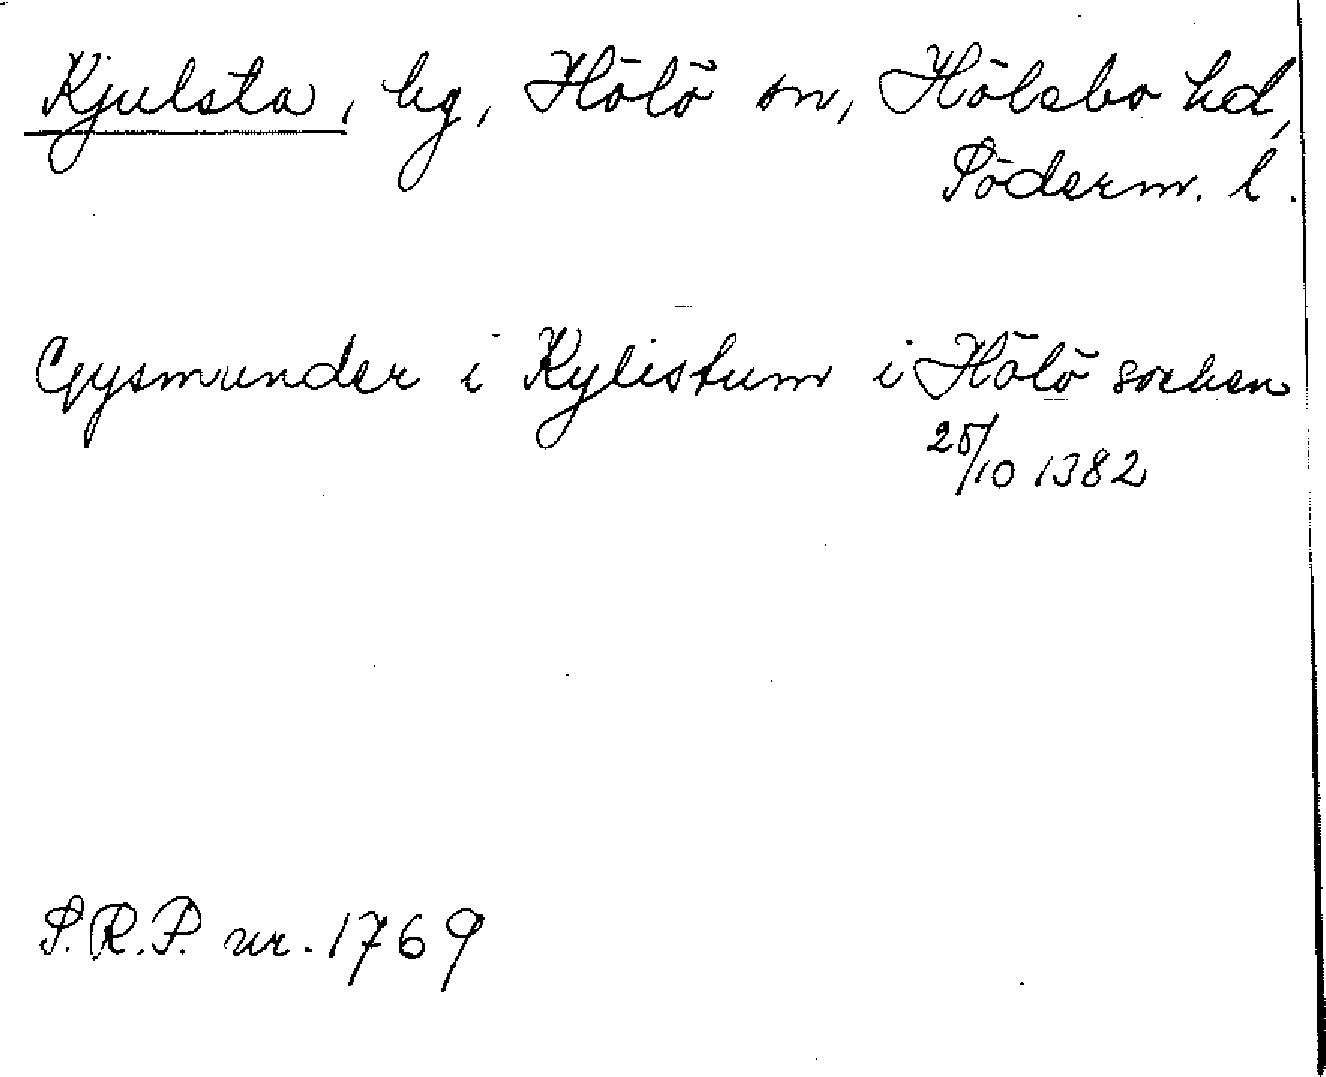 Kjulsta, hg, Hölö sn, Hölebo hd,
Söderm. l.
Gysmunder i Kylistum i Hölö socken
25/10 1382
S.R.P. nr. 1769